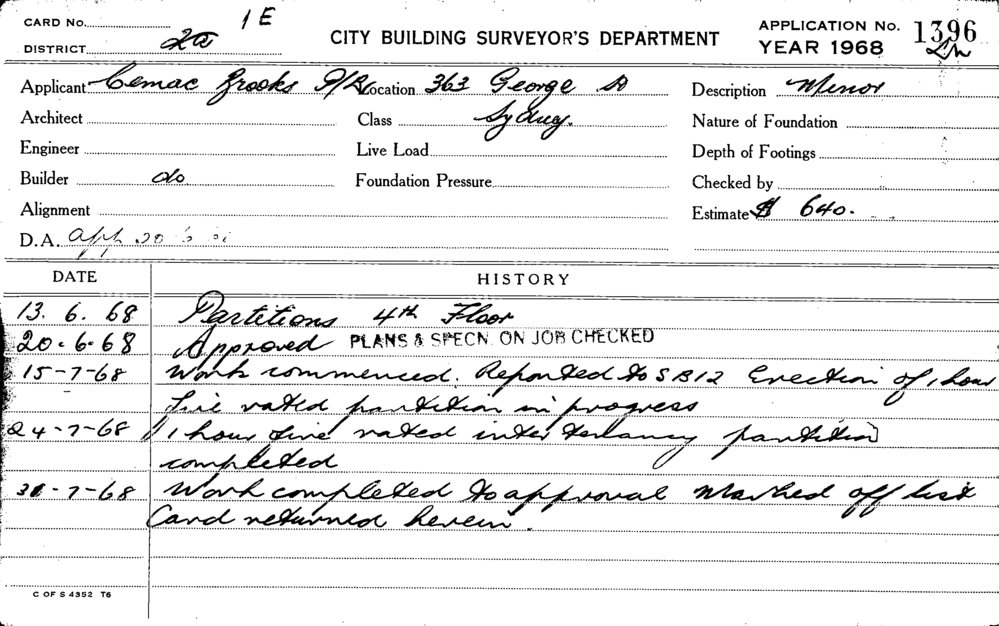 CARD No. 1 E
DISTRICT 2a
CITY BUILDING SURVEYOR'S DEPARTMENT
APPLICATION No. 1396
YEAR 1968
Applicant Cemac Brooks P/L Location 363 George St Description Minor
Architect Class Sydney. Nature of Foundation
Engineer Live Load Depth of Footings
Builder do Foundation Pressure Checked by
Alignment Estimate $ 640.
D.A. App 20 6
DATE HISTORY
13. 6. 68 Partitions 4th Floor
20.6.68 Approved PLANS & SPECN. ON JOB CHECKED
15-7-68 Work commenced. Reported to SB12 Erection of 1 hour
fire rated partition in progress
24-7-68 1 hour fire rated inter tenancy partition
completed
-7-68 Work completed to approval Marked off list
Card returned herein.
C OF S 4352 T6